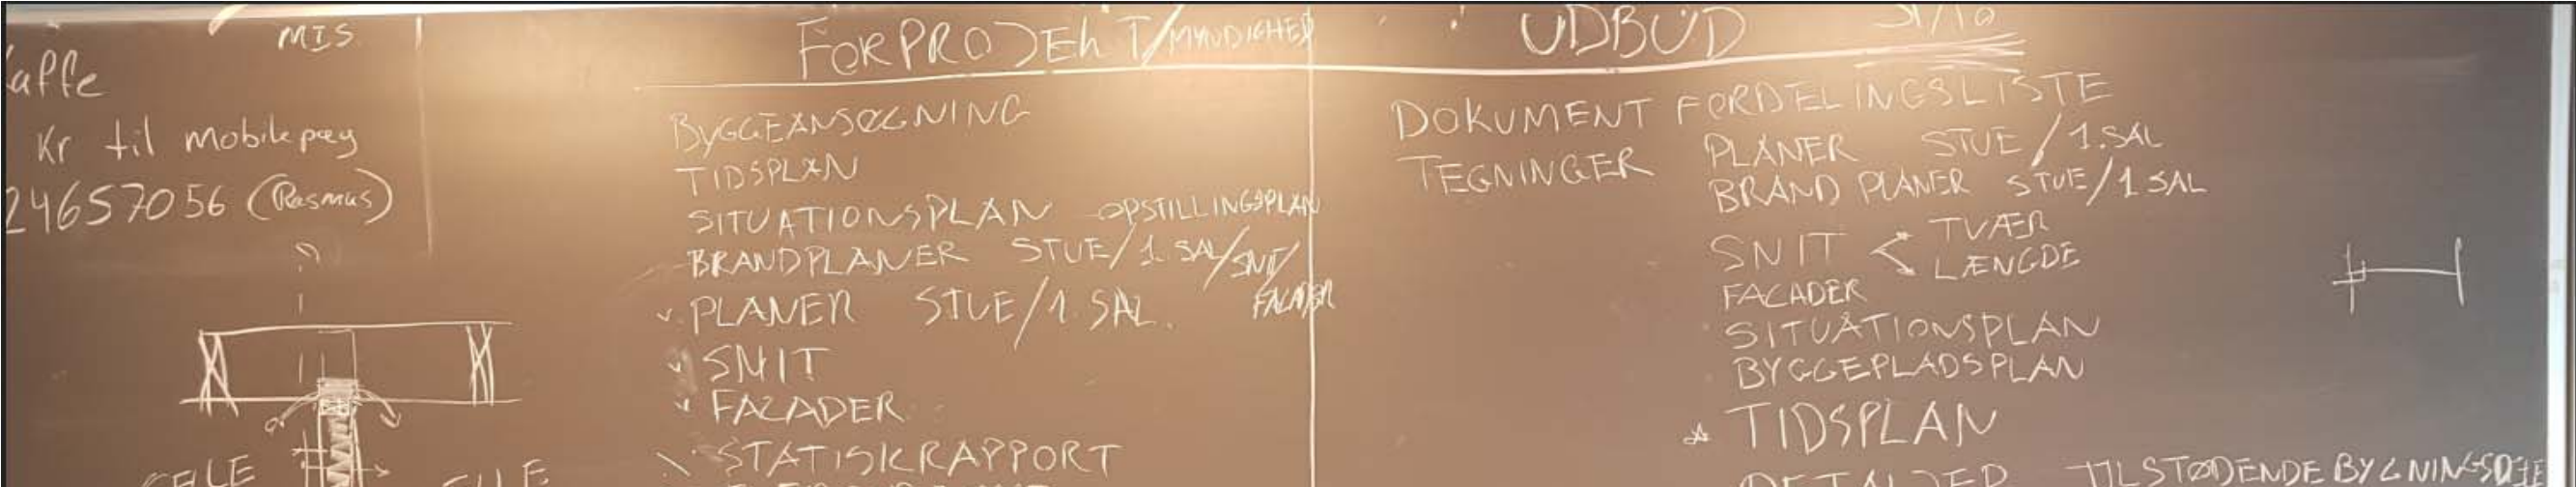 MIS
affe
Kr til mobilepay
24657056 (Rasmus)
FORPROJEKT/MYNDIGHED
BYGGEANSØGNING
TIDSPLAN
SITUATIONSPLAN OPSTILLINGSPLAN
BRANDPLANER STUE/1.SAL/SNIT/
FACADER
PLANER STUE/1.SAL.
SNIT
FACADER
STATISKRAPPORT
UDBUD 31/10
DOKUMENT FORDELINGSLISTE
TEGNINGER PLANER STUE/1.SAL
BRAND PLANER STUE/1 SAL
SNIT < TVÆR
LÆNGDE
FACADER
SITUATIONSPLAN
BYGGEPLADSPLAN
TIDSPLAN
DETALJER TILSTØDENDE BYGNINGSDELE